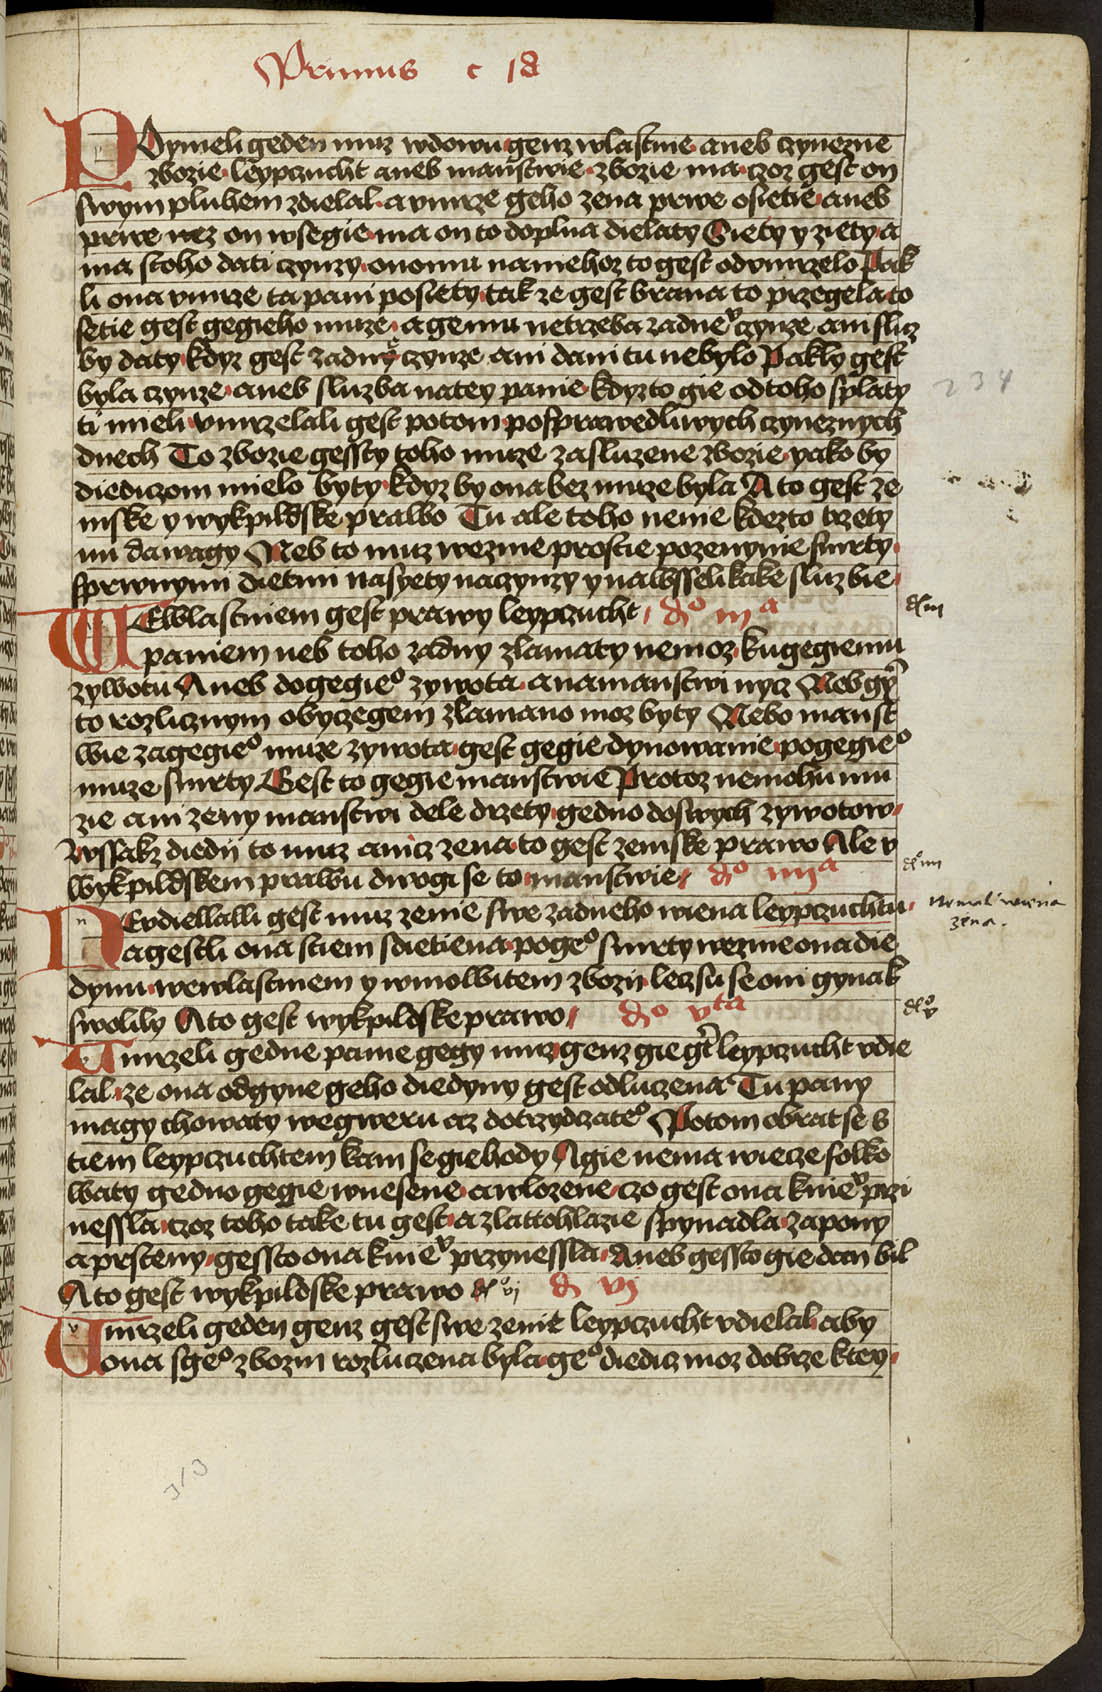 Primus c 18
POymeli geden muz wdowu genz wlastnie aneb czynezne
zbozie leypczucht aneb manstwie zbozie ma czoz gest on
swym pluhem zdielal a vmrze geho zena prwe osietie aneb
prwe nez on wsegie ma on to doplna dielaty Siety y ziety a
ma stoho dati czynzy onomu namehoz to gest odumrzelo Pak
li ona vmrze ta pani posiety tak ze gest brana to przegela to
setie gest gegieho muze a gemu netrzeba zadneo czynze ani sluz
by daty kdyz gest zadny czynze ani dani tu nebylo Pakly gest
byla czynze aneb sluzba natey panie kdyzto gie odtoho splaty
ti mieli vmrzelali gest potom posprawedliwych czyneznych
dnech To zbozie gessty toho muze zasluzene zbozie yako by
diediczom mielo byty kdyz by ona bez muze byla A to gest ze
mske y wykpildske prawo Tu ale toho nenie kdezto trzety
mu dawagy Neb to muz wezme prostie pozenynie smrty
sprwnymi dietmi nasyety naczynzy y nawsselikake sluzbie
WEwlastniem gest prawy leypczucht do iiia
paniem neb toho zadny zlamaty nemoz kugegiemu
zywotu Aneb dogegieo zywota a namanstwi nycz Neb gyr
to rozlicznym obyczegem zlamano moz byty Nebo manst
wie zagegieo muze zywota gest gegie dynowanie pogegieo
muze smrty Gest to gegie manstwie Protoz nemohu mu
zie ani zeny manstwi dele drzety gedno doswych zywotow
Wssakz diedij to muz anicz zena to gest zemske prawo Ale v
wykpildskem prawu dwogi se to manstwie do iiiia
NEvdiellalli gest muz zenie swe zadneho wiena leypczuchtu
a gestli ona stiem sdietiena pogeo smrty wezme ona die
dynu wewlastniem y wmolwitem zbozij leczsu se oni gynak
swolily A to gest wykpildske prawo do vta
Vmrzeli gedne panie gegy muz genz gie get leypczucht vdie
lal ze ona odgyne geho diedyny gest odluczena Tu pany
magy chowaty wegweru az dotrzydczateo Potom obrat se s
tiem leypczuchtem kam se gie hody A gie nema wiecze folko
waty gedno gegie wnesene a wlozene czo gest ona knieo przi
nessla czoz toho take tu gest a zlattohlazie spynadla zapony
a prsteny gessto ona knieo przynessla Aneb gessto gie dan bil
A to gest wykpildske prawo do vj d vj
Vmrzeli geden genz gest swe zenie leypczucht vdielal aby
ona sgeo zbozm rozluczena byla geo diedicz moz dobrze ktey
234
do iii
do iiii
nemali wiena
zena.
do v
313